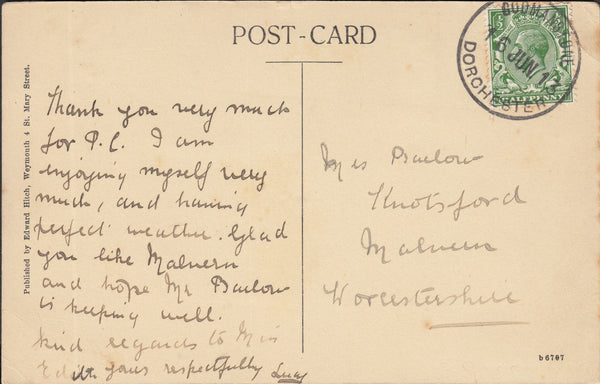 POST-CARD
GODMANSTONE
6 JUN 13
DORCHESTER
Published by Edward Hitch, Weymouth 4 St. Mary Street.
Thank you very much
for P.C. I am
enjoying myself very
much, and having
perfect weather. Glad
you like Malvern
and hope Mr Barlow
is keeping well.
Kind regards to Miss
Edith yours respectfully Lucy
Mrs Barlow
Knotsford
Malvern
Worcestershire
b6707